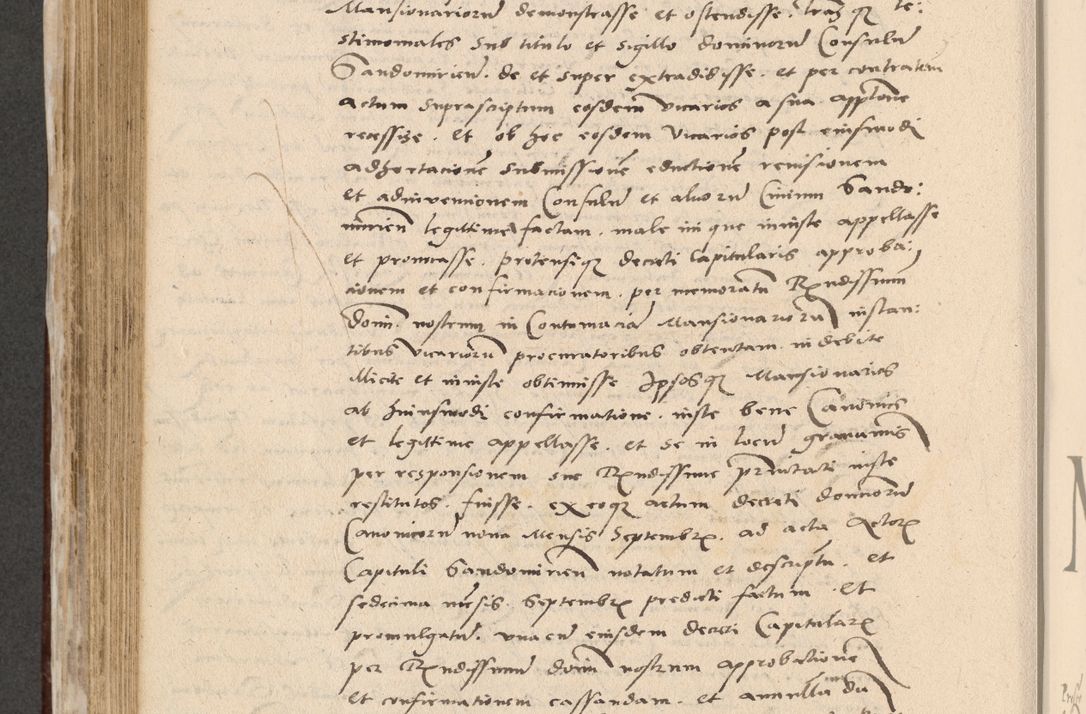 Mansionariorũ demonstrasse et ostendisse. Lrasq₃ te:
stimoniales sub titulo et sigillo dominorũ Consulũ
Sandomirien̄. de et super extradidisse. et per contratem
actum suprascriptum eosdem̄ vicarios a sua app̄tione
recessisse. Et ob hoc eosdem Vicarios post eiusmodi
adhortacionē submissionē eductionē remisionem
et adinventionem Consulũ et aliorũ Civium Sando:
mirien̄ legittime factam. male in que iniuste appellasse
et provocasse. Protensiq₃ decreti Capitularis approba:
cionem et confirmacionem. per memoratũ Rẽndissimum
Domi. nostrum in Contumacia Mansionariorũ instan:
tibus vicariorũ procuratoribus obtentam. indebite
illicite et iniuste obtinuisse Ipsosq₃ Mansionarios
ab huiusmodi confirmatione. iuste bene Canonice
et legittime appellasse. et se in locũ gravaminis
per responsionem sue Rẽndissime pr̄nitati iuste
restitutos. fuisse. ex eoq₃ actum decreti dominorũ
Canonicorũ nona Mensis Septembrꝭ. ad acta Actorꝭ
Capituli Sandomirien̄ notatum et descriptũ. et
sedecima mẽsis. Septembrꝭ predicti factum. Et
promulgatũ. una cũ eiusdem decreti Capitularꝭ
per Rẽndissimũ domi nostrum approbatione
et confirmationem cassandam. et annullandũ